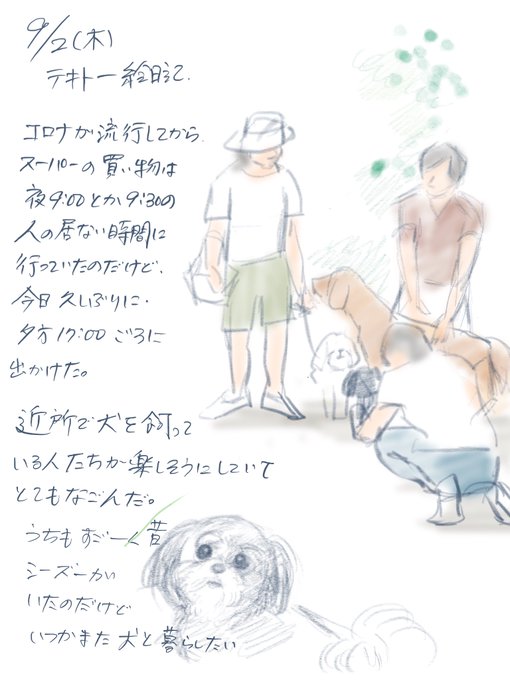 9/2(木)
テキトー絵日記.
コロナが流行してから.
スーパーの買い物は
夜9:00とか9:30の
人の居ない時間に
行っていたのだけど、
今日久しぶりに・
夕方17:00ごろに
出かけた。
近所で犬を飼って
いる人たちが楽しそうにしていて
とてもなごんだ。
うちもすごーく昔
シーズーがい
いたのだけど
いつかまた犬と暮らしたい